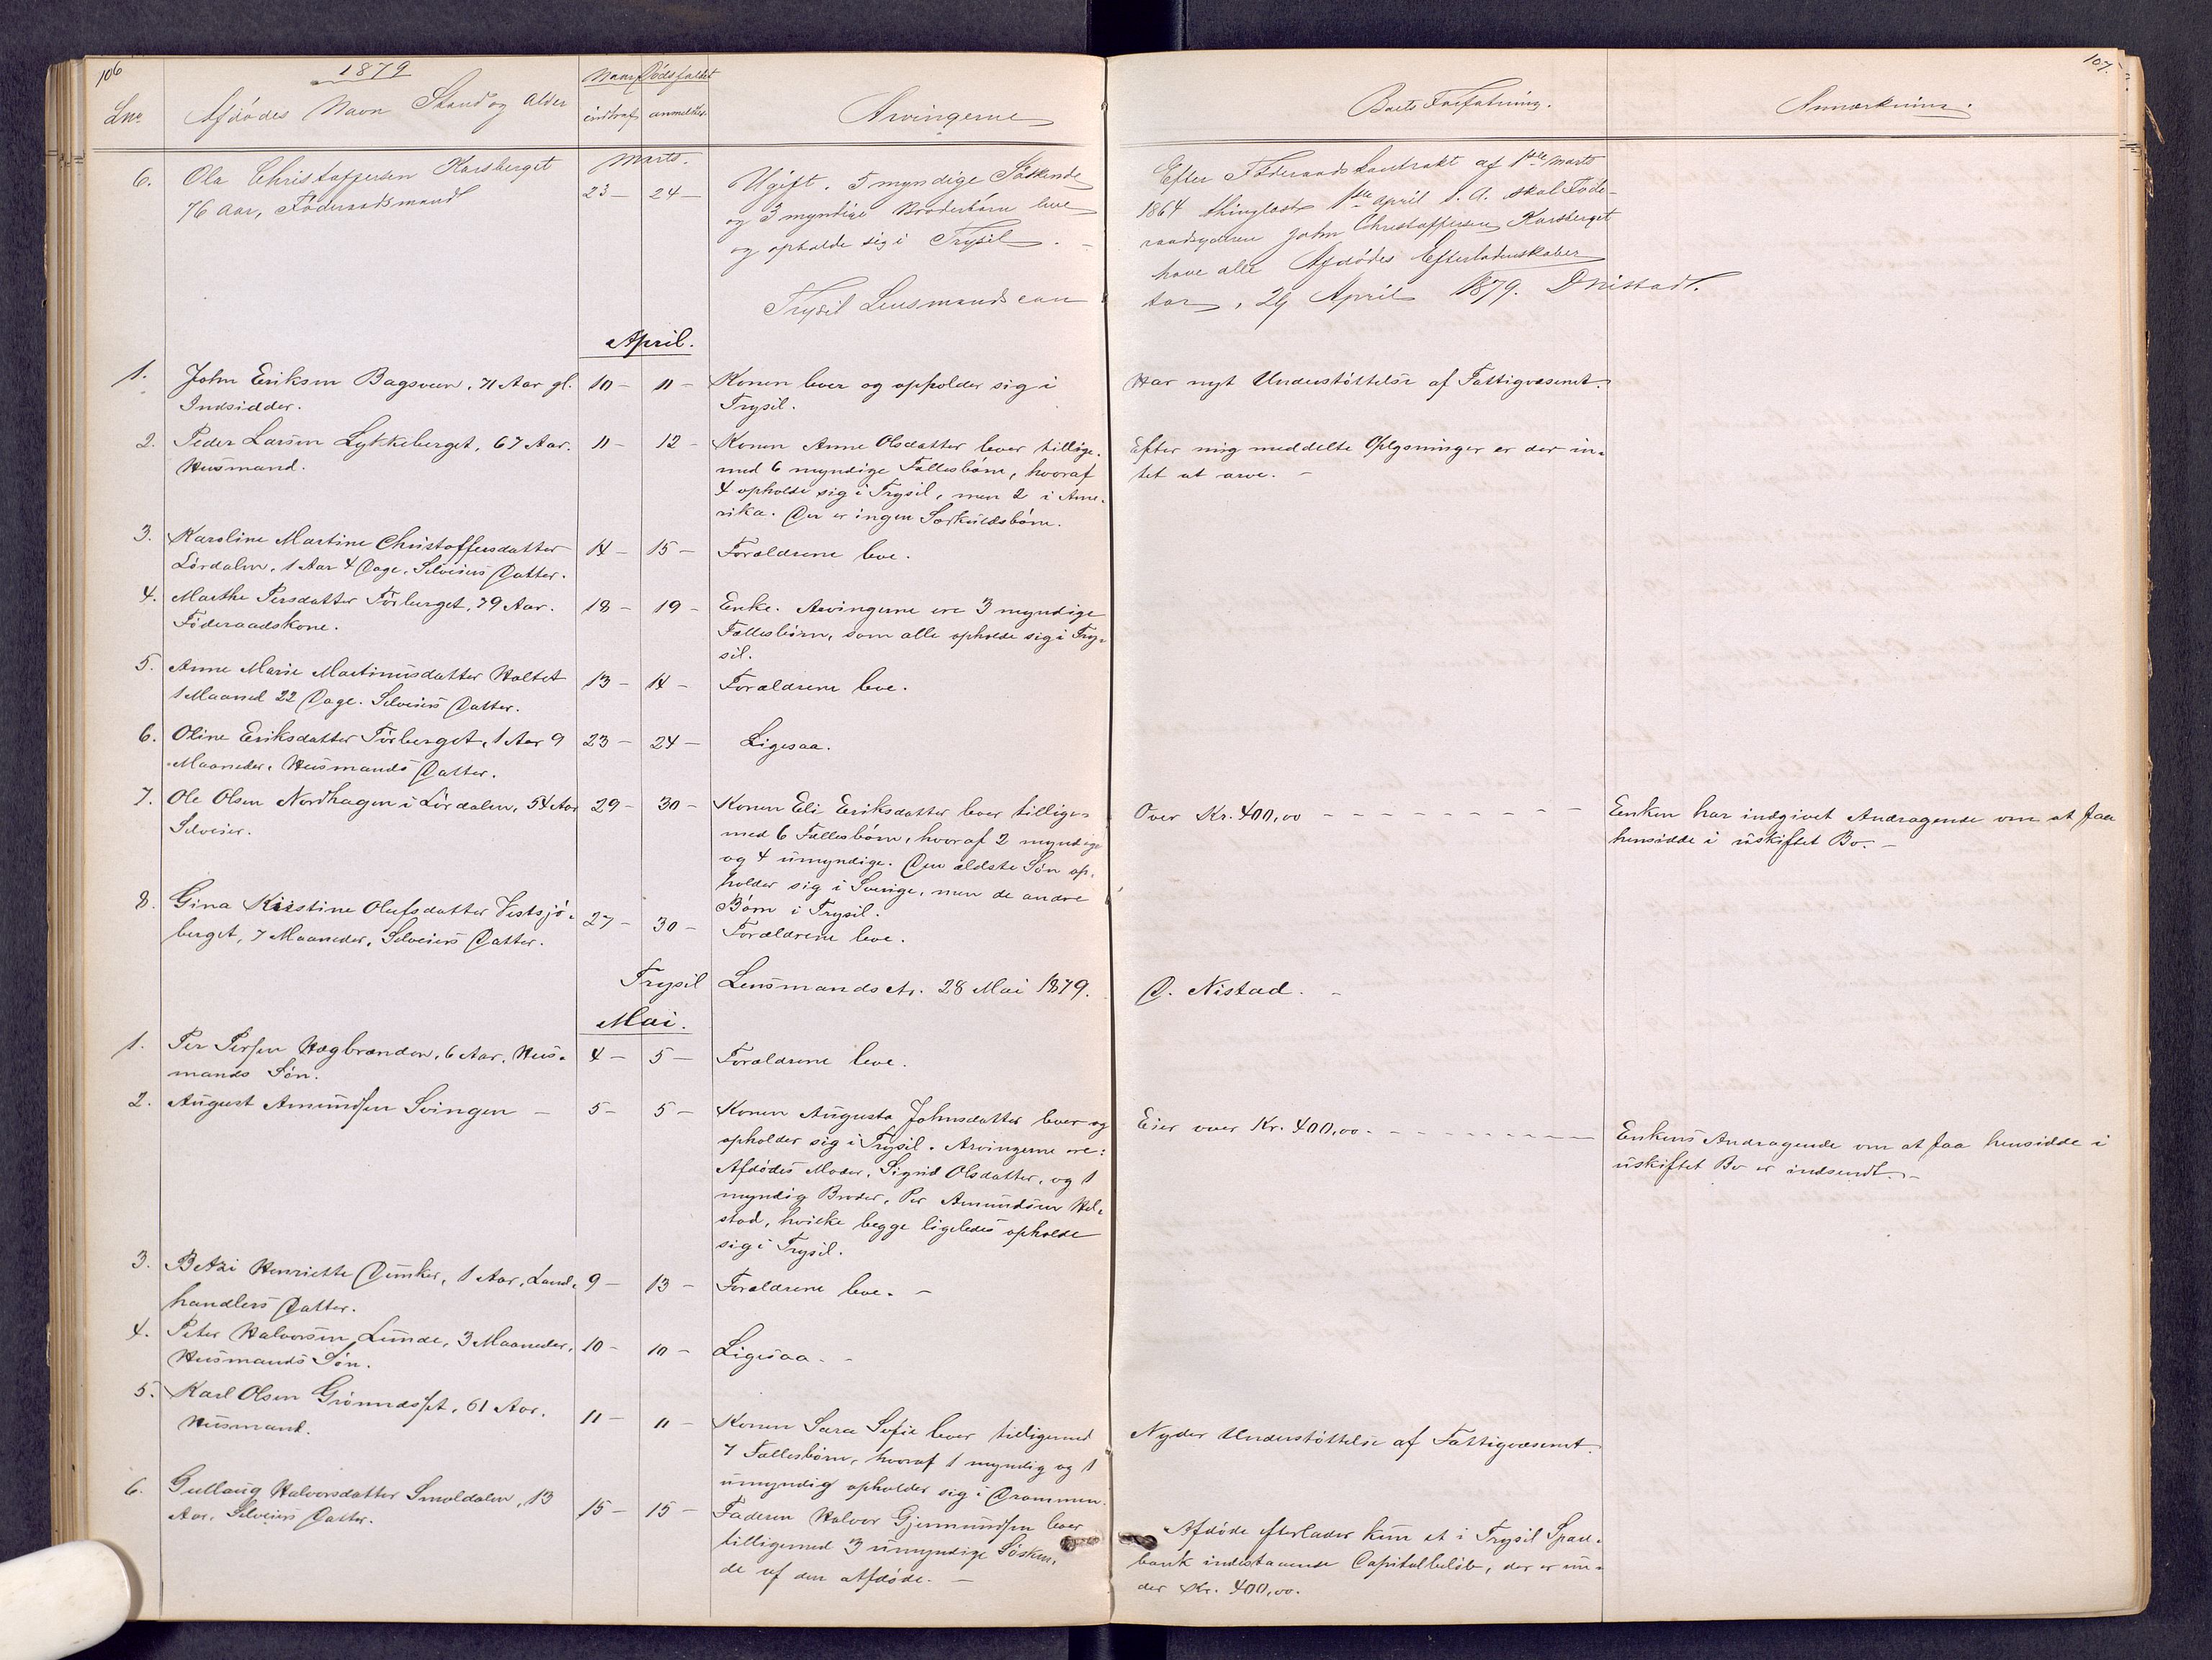 106
1879
Lno
Afdödes Navn Stand og Alder
Naar Dödsfaldet
indtraf anmeldtes.
Arvingerne
6. Ola Christoffersen Karsberget
76 Aar, Föderaadsmand
Marts.
23 – 24 –
Ugift. 5 myndige Söskende
og 3 myndige Broderbørn leve
og opholde sig i Trysil. –
Trysil Lensmandscon
April.
1. John Eriksen Bagsveen, 71 Aar gl.
Indsidder.
10 – 11 –
Konen lever og opholder sig i
Trysil.
2. Peder Larsen Lykkeberget, 67 Aar.
Husmand.
11 – 12 –
Konen Anne Olsdatter lever tillige-
med 6 myndige Fællesbörn, hvoraf
4 opholde sig i Trysil, men 2 i Ame-
rika. Der er ingen Særkuldsbörn.
3. Karoline Martine Christoffersdatter
Lördalen, 1 Aar 4 Dage, Selveiers Datter.
14 – 15 –
Forældrene leve.
4. Marthe Persdatter Törberget, 79 Aar.
Föderaadskone.
18 – 19 –
Enke. Arvingerne ere 3 myndige
Fællesbörn, som alle opholde sig i Try-
sil.
5. Anne Marie Martinusdatter Holtet
1 Maaned 22 Dage. Selveiers Datter.
13 – 14 –
Forældrene leve.
6. Oline Eriksdatter Törberget, 1 Aar 9
Maaneder, Husmands Datter.
23 – 24 –
Ligesaa.
7. Ole Olsen Nordhagen i Lördalen, 54 Aar
Selveier.
29 – 30 –
Konen Eli Eriksdatter lever tillige-
med 6 Fællesbörn, hvoraf 2 myndige
og 4 umyndige. Den ældste Sön op-
holder sig i Sverige, men de andre
Börn i Trysil.
8. Gina Kristine Olufsdatter Vestsjö-
berget, 7 Maaneder, Selveiers Datter.
27 – 30 –
Forældrene leve.
Trysil Lensmandsct. 28 Mai 1879.
Mai.
1. Per Persen Hagbranden, 6 Aar, Hus-
mands Sön.
4 – 5 –
Forældrene leve.
2. August Amundsen Svingen –
5 – 5 –
Konen Augusta Johnsdatter lever og
opholder sig i Trysil. Arvingerne ere:
Afdödes Moder, Sigrid Olsdatter, og 1
myndig Broder, Per Amundsen Hel-
stad, hvilke begge ligeledes opholde
sig i Trysil.
3. Betzi Henriette Dunker, 1 Aar, Land-
handlers Datter.
9 – 13 –
Forældrene leve. –
4. Peter Halvorsen Lunde, 3 Maaneder,
Husmands Sön.
10 – 10 –
Ligesaa. –
5. Karl Olsen Grönnæsset, 61 Aar.
Husmand.
11 – 11 –
Konen Sara Sofie lever tilligemed
7 Fællesbörn, hvoraf 1 myndig og 1
umyndig opholder sig i Drammen.
6. Gullaug Halvorsdatter Smoldalen, 13
Aar, Selveiers Datter.
15 – 15 –
Faderen Halvor Gjermundsen lever
tilligemed 3 umyndige Sösken-
de af den Afdöde. –
107.
Boets Forfatning.
Anmærkning.
Efter Föderaadskontrakt af 1ste Marts
1864 thinglæst 1ste April s. A. skal Föde-
raadsyderen John Christoffersen Karsberget
have alle Afdödes Efterladenskaber
tor, 29 April 1879. D Nistad.
Har nydt Understöttelse af Fattigvæsenet.
Efter mig meddelte Oplysninger er der in-
tet at arve. –
Over Kr. 400,00 – – – – – – – – –
Enken har indgivet Andragende om at faa
hensidde i uskiftet Bo. –
D. Nistad. –
Eier over Kr. 400,00. – – – – – – – – –
Enkens Andragende om at faa hensidde i
uskiftet Bo er indsendt. –
Nyder Understöttelse af Fattigvæsenet.
Afdöde efterlader kun et i Trysil Spare-
bank indestaaende Capitalbelöb, der er un-
der Kr. 400,00.